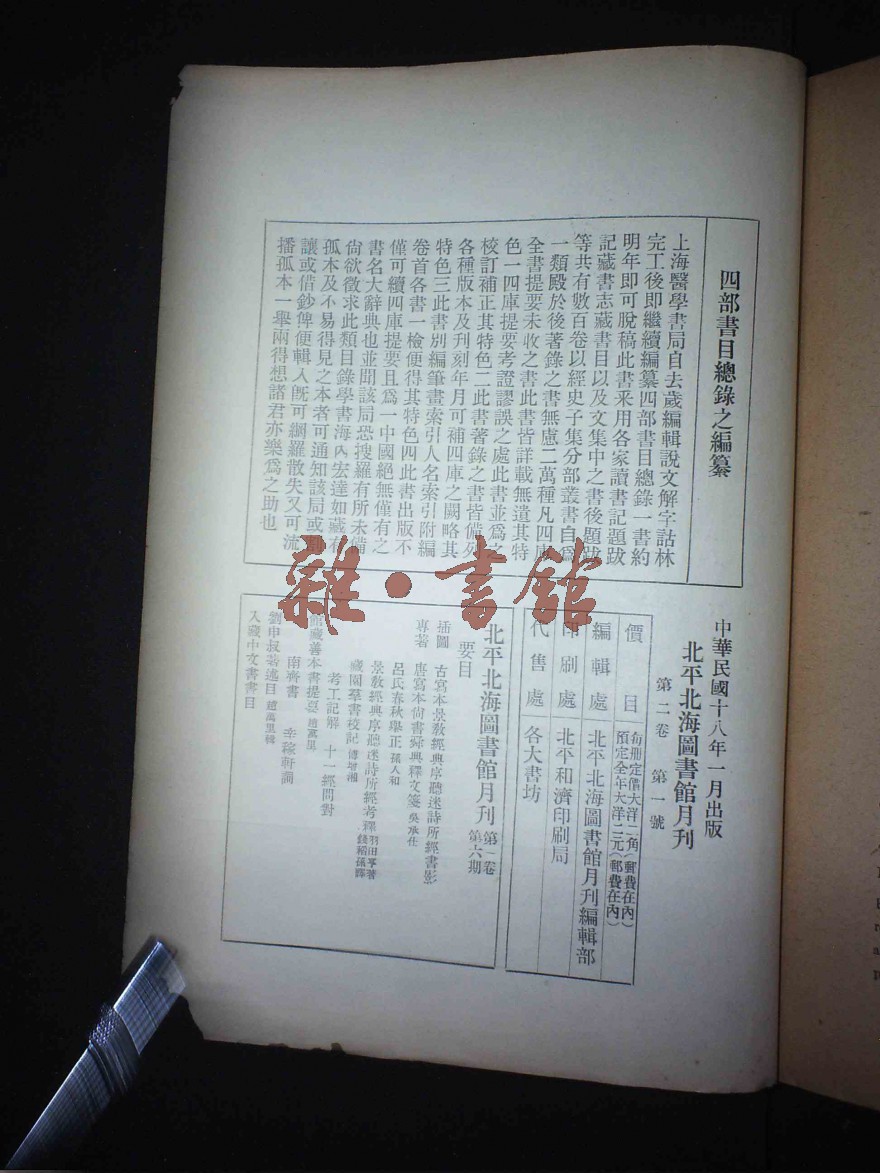 四部書目總錄之編纂
上海醫學書局自去歲編輯說文解字詁林
完工後即繼續編纂四部書目總錄一書約
明年即可脫稿此書采用各家讀書記題跋
記藏書志藏書目以及文集中之書後題跋
等共有數百卷以經史子集分部叢書自爲
一類殿於後著錄之書無慮二萬種凡四庫
全書提要未收之書此書皆詳載無遺其特
色一四庫提要考證謬誤之處此書並爲之
校訂補正其特色二此書著錄之書皆備列
各種版本及刊刻年月可補四庫之闕略其
特色三此書別編筆畫索引人名索引附編
卷首各書一檢便得其特色四此書出版不
僅可續四庫提要且爲一中國絕無僅有之
書名大辭典也並聞該局恐搜羅有所未備
尙欲徵求此類目錄學書海內宏達如藏有
孤本及不易得見之本者可通知該局或
讓或借鈔俾便輯入旣可網羅散失又可流
播孤本一舉兩得想諸君亦樂爲之助也
中華民國十八年一月出版
北平北海圖書館月刊
第二卷 第一號
價目 每册定價大洋二角(郵費在內)
預定全年大洋二元(郵費在內)
編輯處 北平北海圖書館月刊編輯部
印刷處 北平和濟印刷局
代售處 各大書坊
北平北海圖書館月刊 第一卷第六期
要目
插圖 古寫本景教經典序聽迷詩所經書影
專著 唐寫本尚書舜典釋文箋 吳承仕
呂氏春秋舉正 孫人和
景教經典序聽迷詩所經考釋 羽田亨著 錢稻孫譯
藏園羣書校記 傅增湘
考工記解 十一經問對
館藏善本書提要 趙萬里
南濟書 辛稼軒詞
劉申叔著述目 趙萬里輯
入藏中文書書目
雜·書館